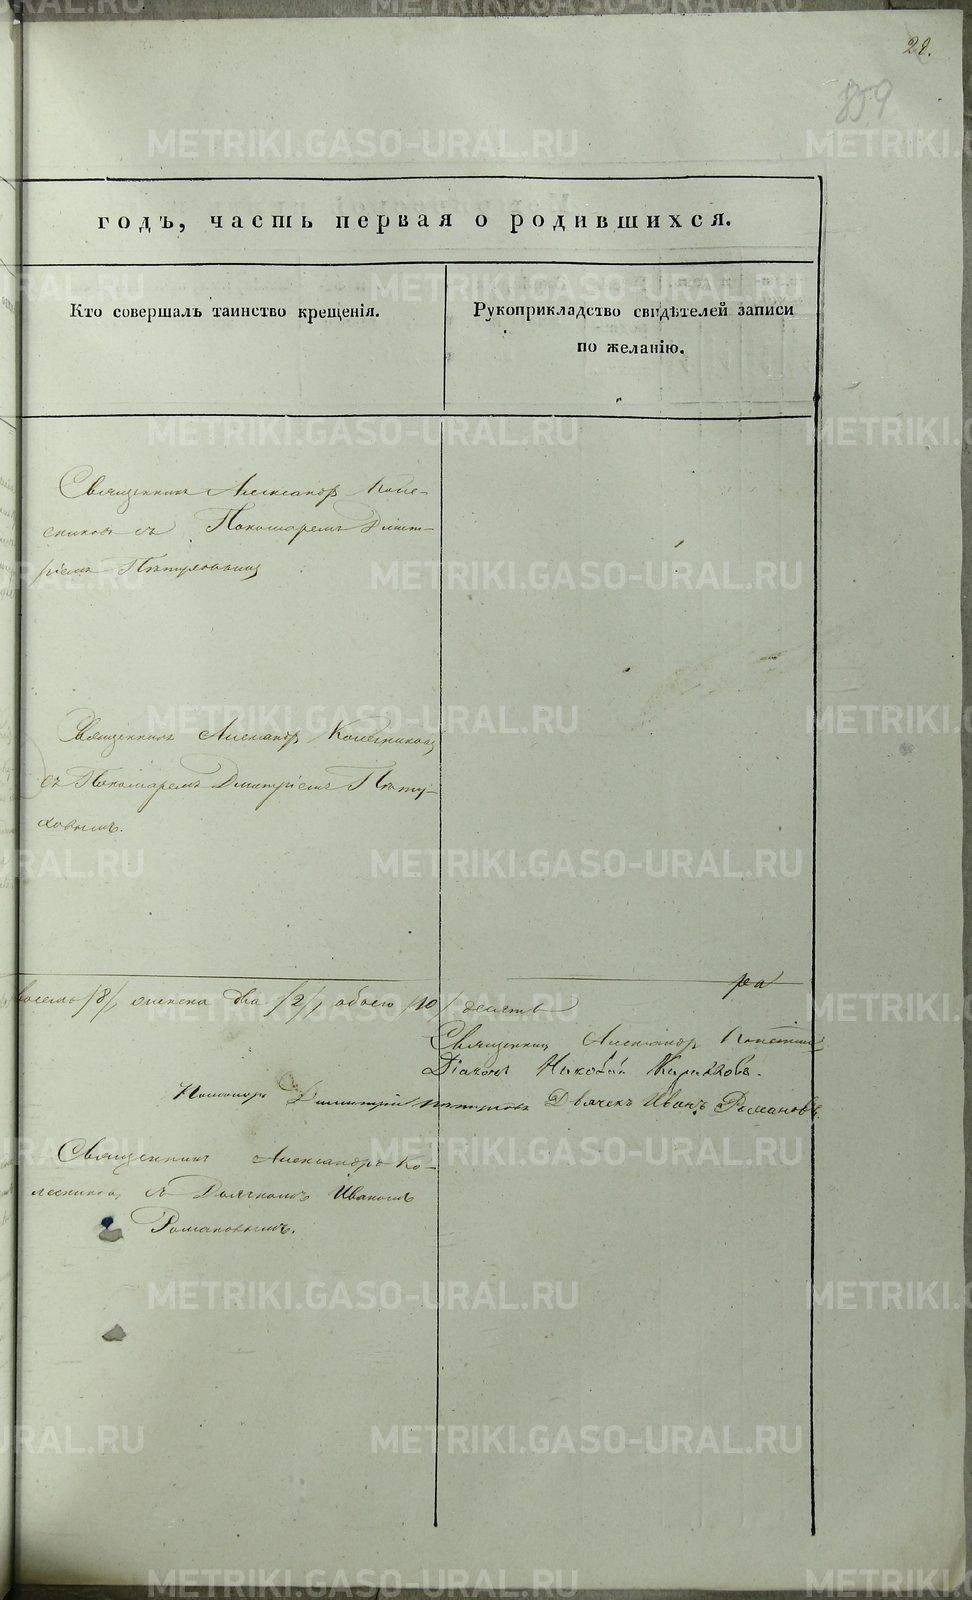 28.
859
годъ, часть первая о родившихся.
Кто совершалъ таинство крещенія.
Рукоприкладство свидѣтелей записи
по желанію.
Священникъ Александръ Коле-
сниковъ съ Пономаремъ Димит-
ріемъ Пѣтуховымъ
Священникъ Александръ Колесниковъ
съ Пономаремъ Дмитріемъ Пѣту-
ховымъ.
восемь /8/, женска два /2/, обоего /10/ десять
Священникъ Александръ
Діаконъ Николай
Пономарь Димитрій Пѣтуховъ Дьячекъ Иванъ Романовъ.
Священникъ Александръ Ко-
лесниковъ съ Дьячкомъ Иваномъ
Романовымъ.
METRIKI.GASO-URAL.RU